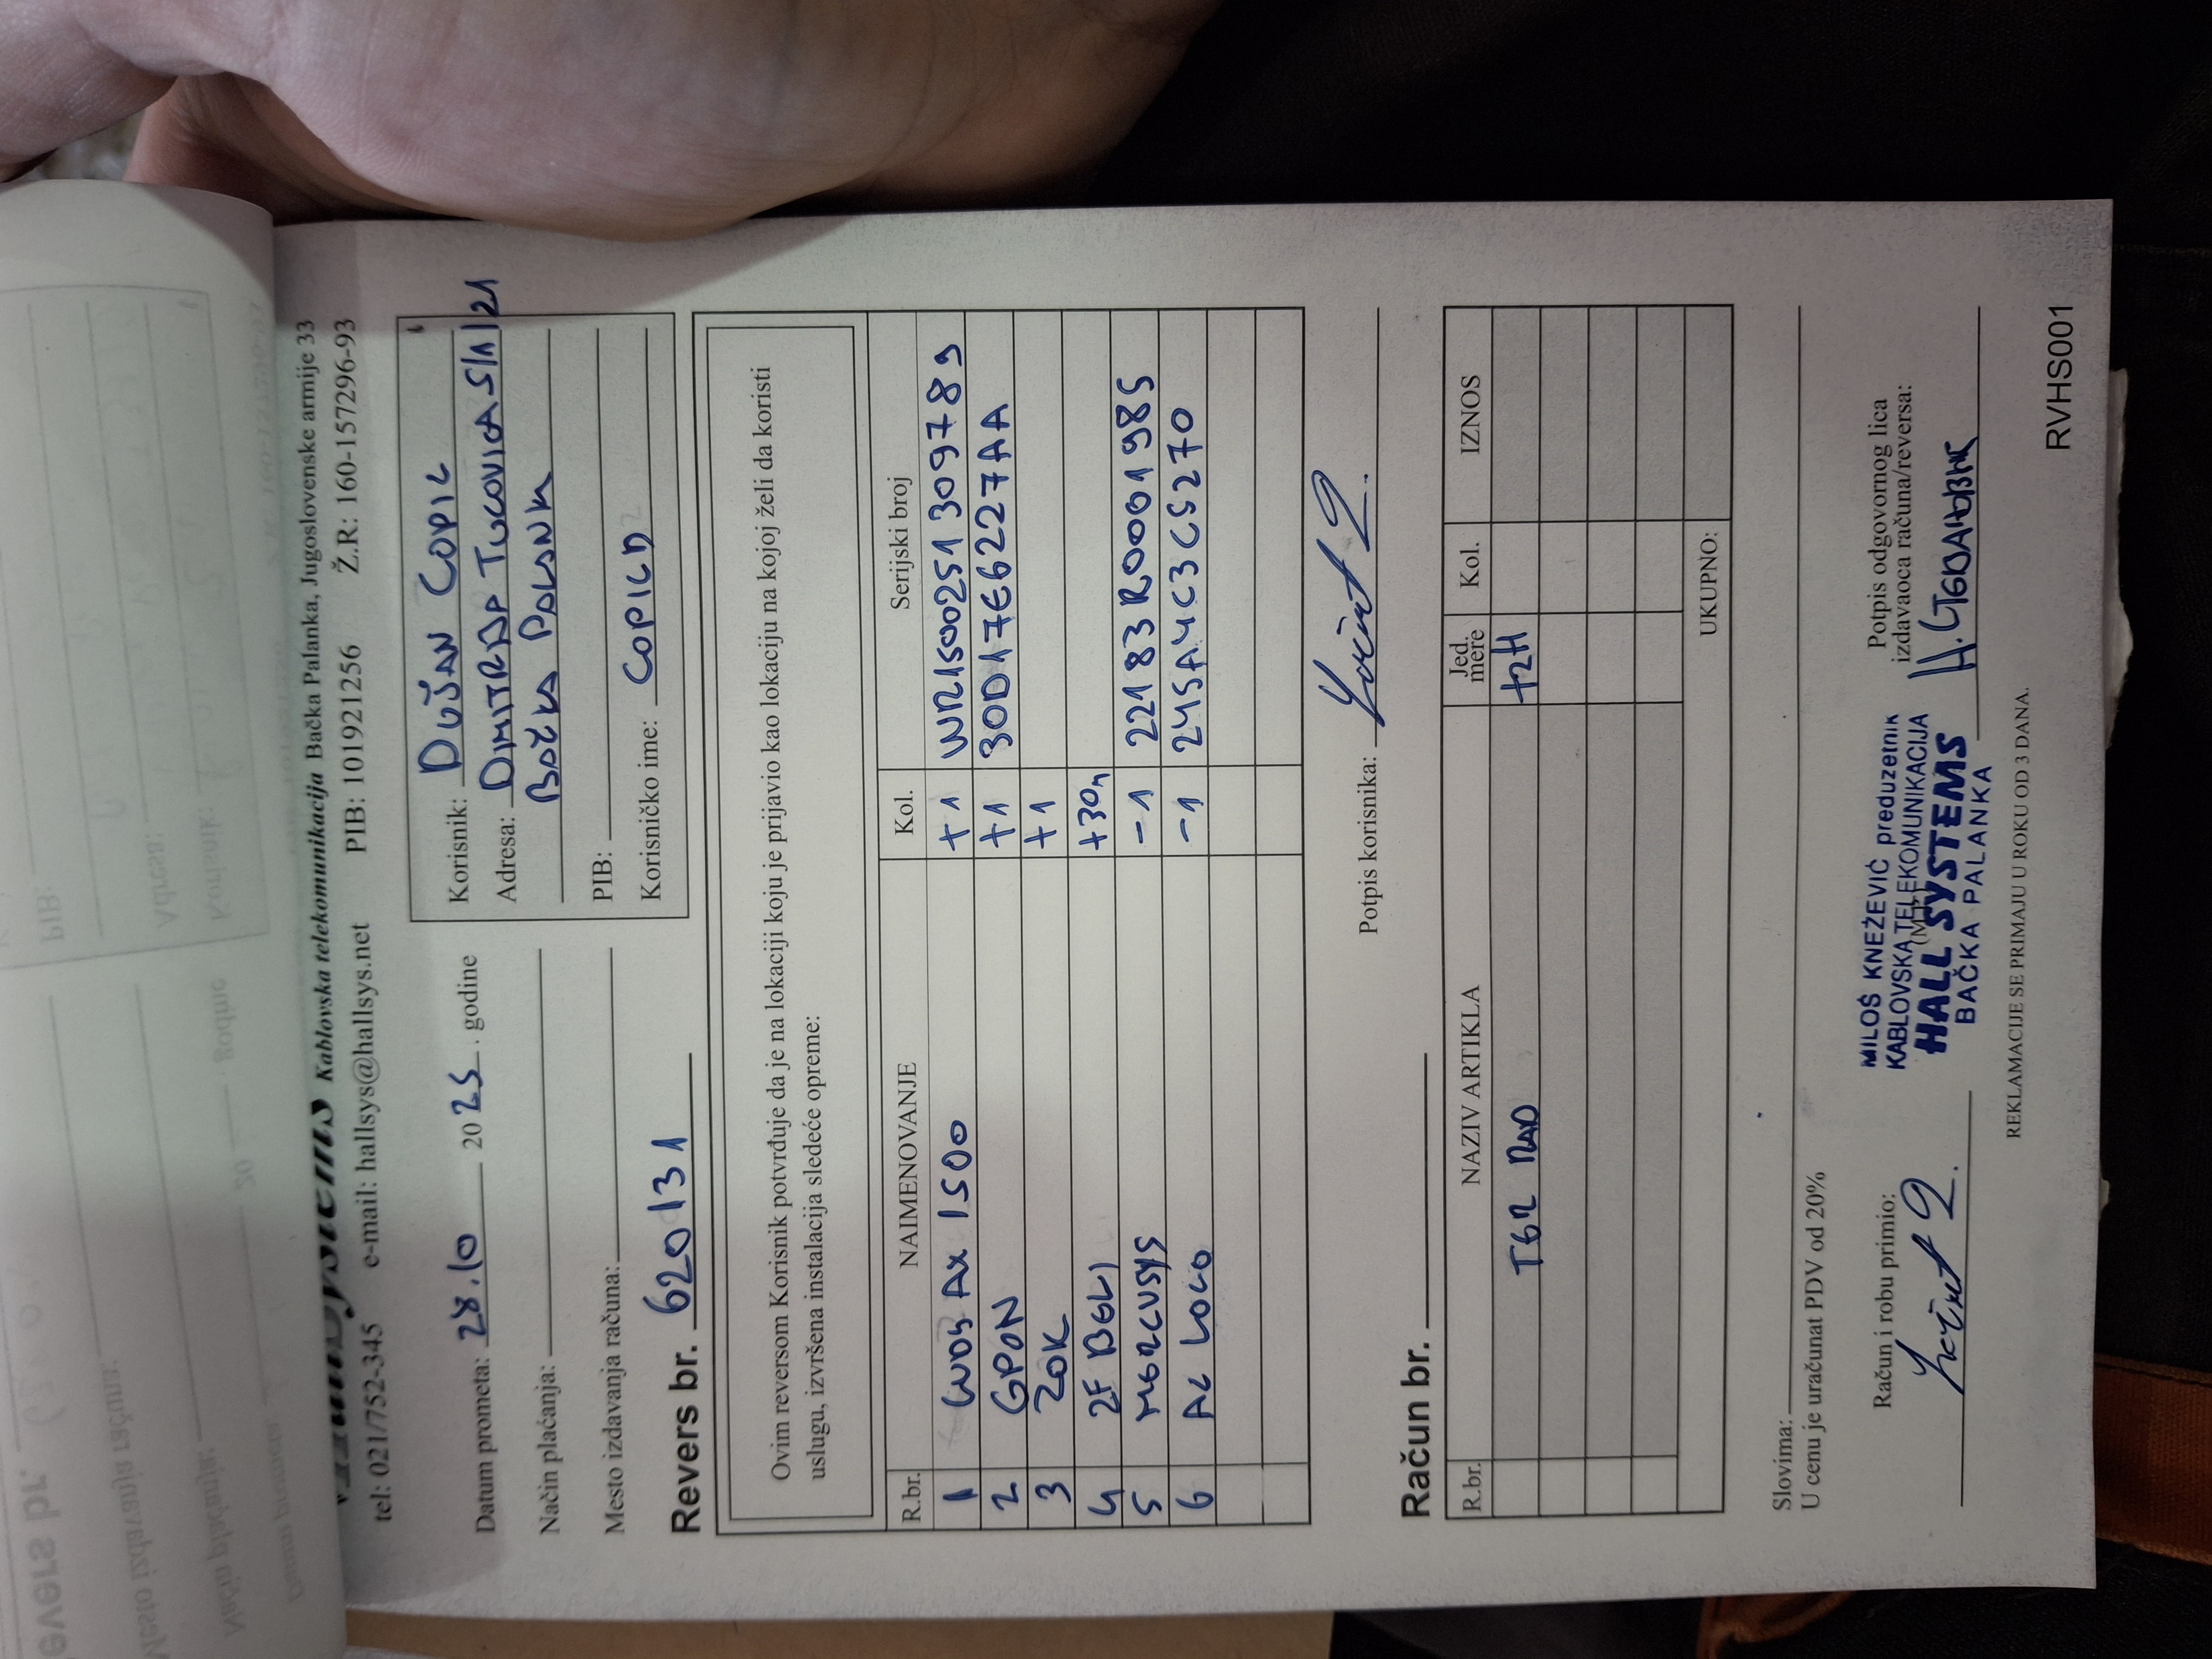 HallSystems Kablovska telekomunikacija Bačka Palanka, Jugoslovenske armije 33
tel: 021/752-345 e-mail: hallsys@hallsys.net PIB: 101921256 Ž.R: 160-157296-93
Datum prometa: 28.10 2025. godine
Način plaćanja:
Mesto izdavanja računa:
Korisnik: DUŠAN COPIC
Adresa: DIMITRIJA TUCOVICA 5/1/21
BAČKA PALANKA
PIB:
Korisničko ime: COPICD
Revers br. 620131
Ovim reversom Korisnik potvrđuje da je na lokaciji koju je prijavio kao lokaciju na kojoj želi da koristi
uslugu, izvršena instalacija sledeće opreme:
R.br. NAIMENOVANJE Kol. Serijski broj
1 AX 1500 +1 WR1500251309789
2 GPON +1 30D17E6227AA
3 ZOK +1
4 2F BELI +30m
5 MERCUSYS -1 22183R0001985
6 AC LOCO -1 245A4C3C5270
Potpis korisnika:
Račun br.
R.br. NAZIV ARTIKLA Jed. mere Kol. IZNOS
TER RAD +2H
UKUPNO:
Slovima:
U cenu je uračunat PDV od 20%
Račun i robu primio:
MILOŠ KNEŽEVIĆ preduzetnik
KABLOVSKA TELEKOMUNIKACIJA
(M.P.)
HALL SYSTEMS
BAČKA PALANKA
Potpis odgovornog lica
izdavaoca računa/reversa:
REKLAMACIJE SE PRIMAJU U ROKU OD 3 DANA.
RVHS001